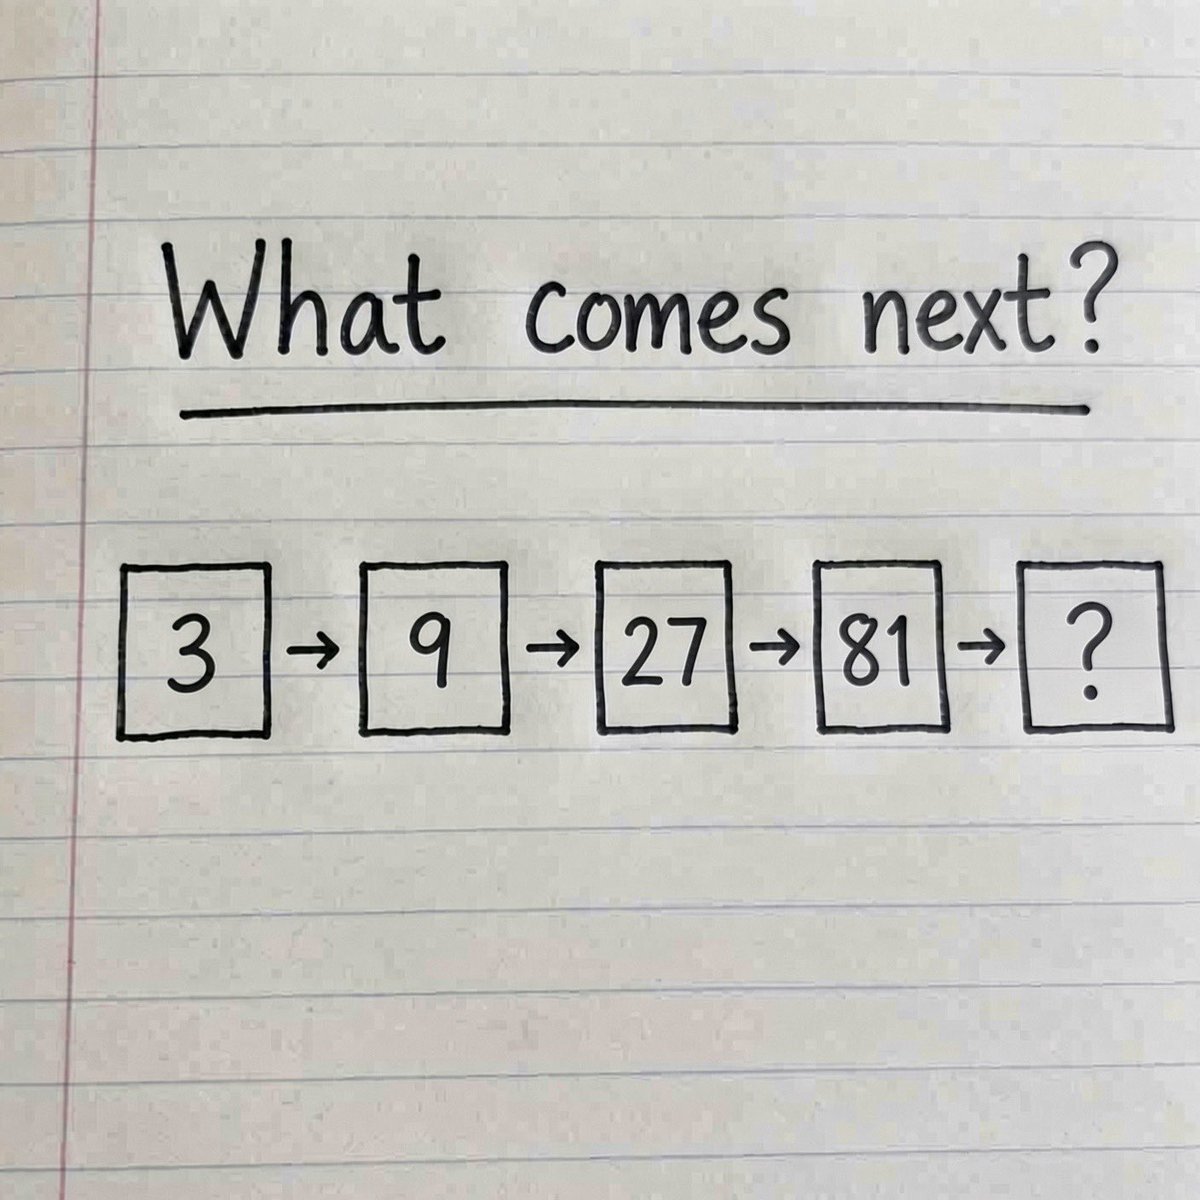 What comes next?
3 → 9 → 27 → 81 → ?